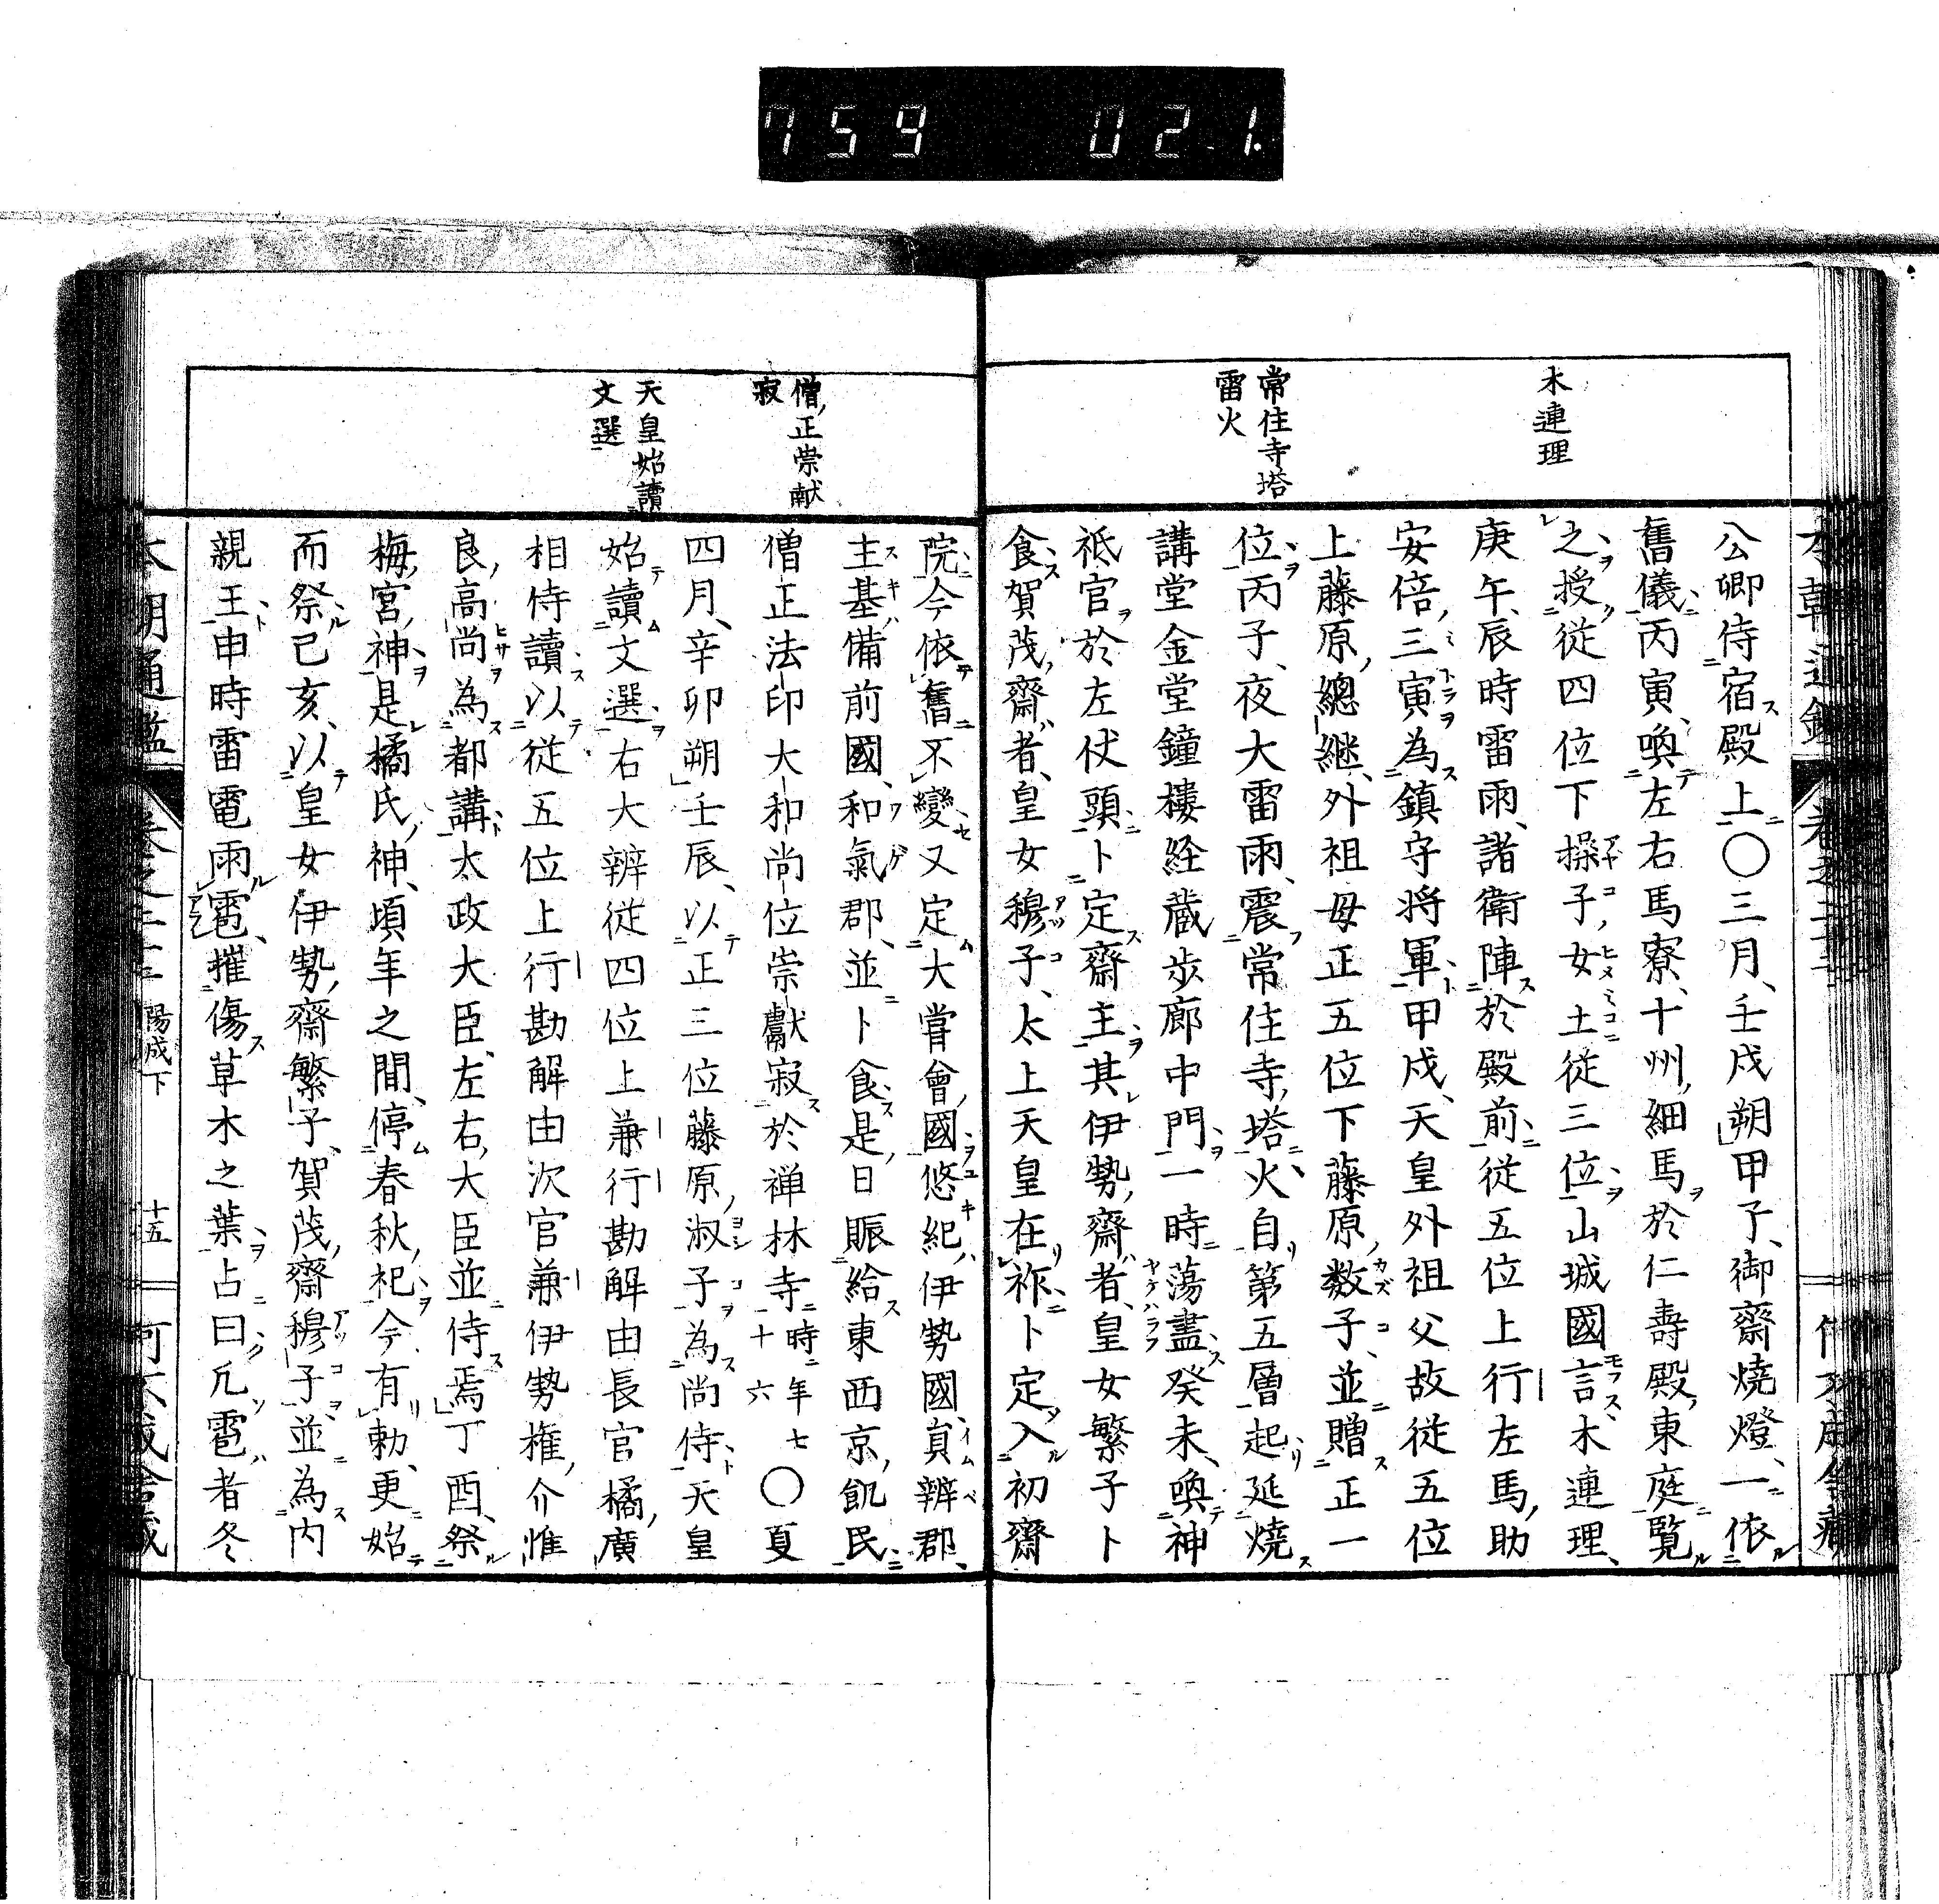 759 021.
木連理
常住寺塔
雷火
公卿侍宿殿上○三月壬戌朔甲子御齋燒燈一依
舊儀丙寅喚左右馬寮十州細馬於仁壽殿東庭覽
之授從四位下操子女土從三位山城國言木連理
庚午辰時雷雨諸衛陣於殿前從五位上行左馬助
安倍三寅為鎮守将軍甲戌天皇外祖父故従五位
上藤原總継外祖母正五位下藤原数子並贈正一
位丙子夜大雷雨震常住寺塔火自第五層起延燒
講堂金堂鐘樓経蔵歩廊中門一時蕩盡癸未喚神
祇官於左仗頭卜定齋主其伊勢齋者皇女繁子卜
食賀茂齋者皇女穆子太上天皇在祚卜定入初齋
僧正崇献
寂
天皇始讀
文選
院今依舊不變又定大嘗會國悠紀伊勢國員辨郡
主基備前國和氣郡並卜食是日賑給東西京飢民
僧正法印大和尚位崇獻寂於禅林寺時年七十六○夏
四月辛卯朔壬辰以正三位藤原淑子為尚侍天皇
始讀文選右大辨従四位上兼行勘解由長官橘廣
相侍讀以従五位上行勘解由次官兼伊勢権介惟
良高尚為都講太政大臣左右大臣並侍焉丁酉祭
梅宮神是橘氏神頃年之間停春秋祀今有勅更始
而祭己亥以皇女伊勢齋繁子賀茂齋穆子並為内
親王申時雷電雨雹摧傷草木之葉占曰凢雹者冬
陽成下
十五